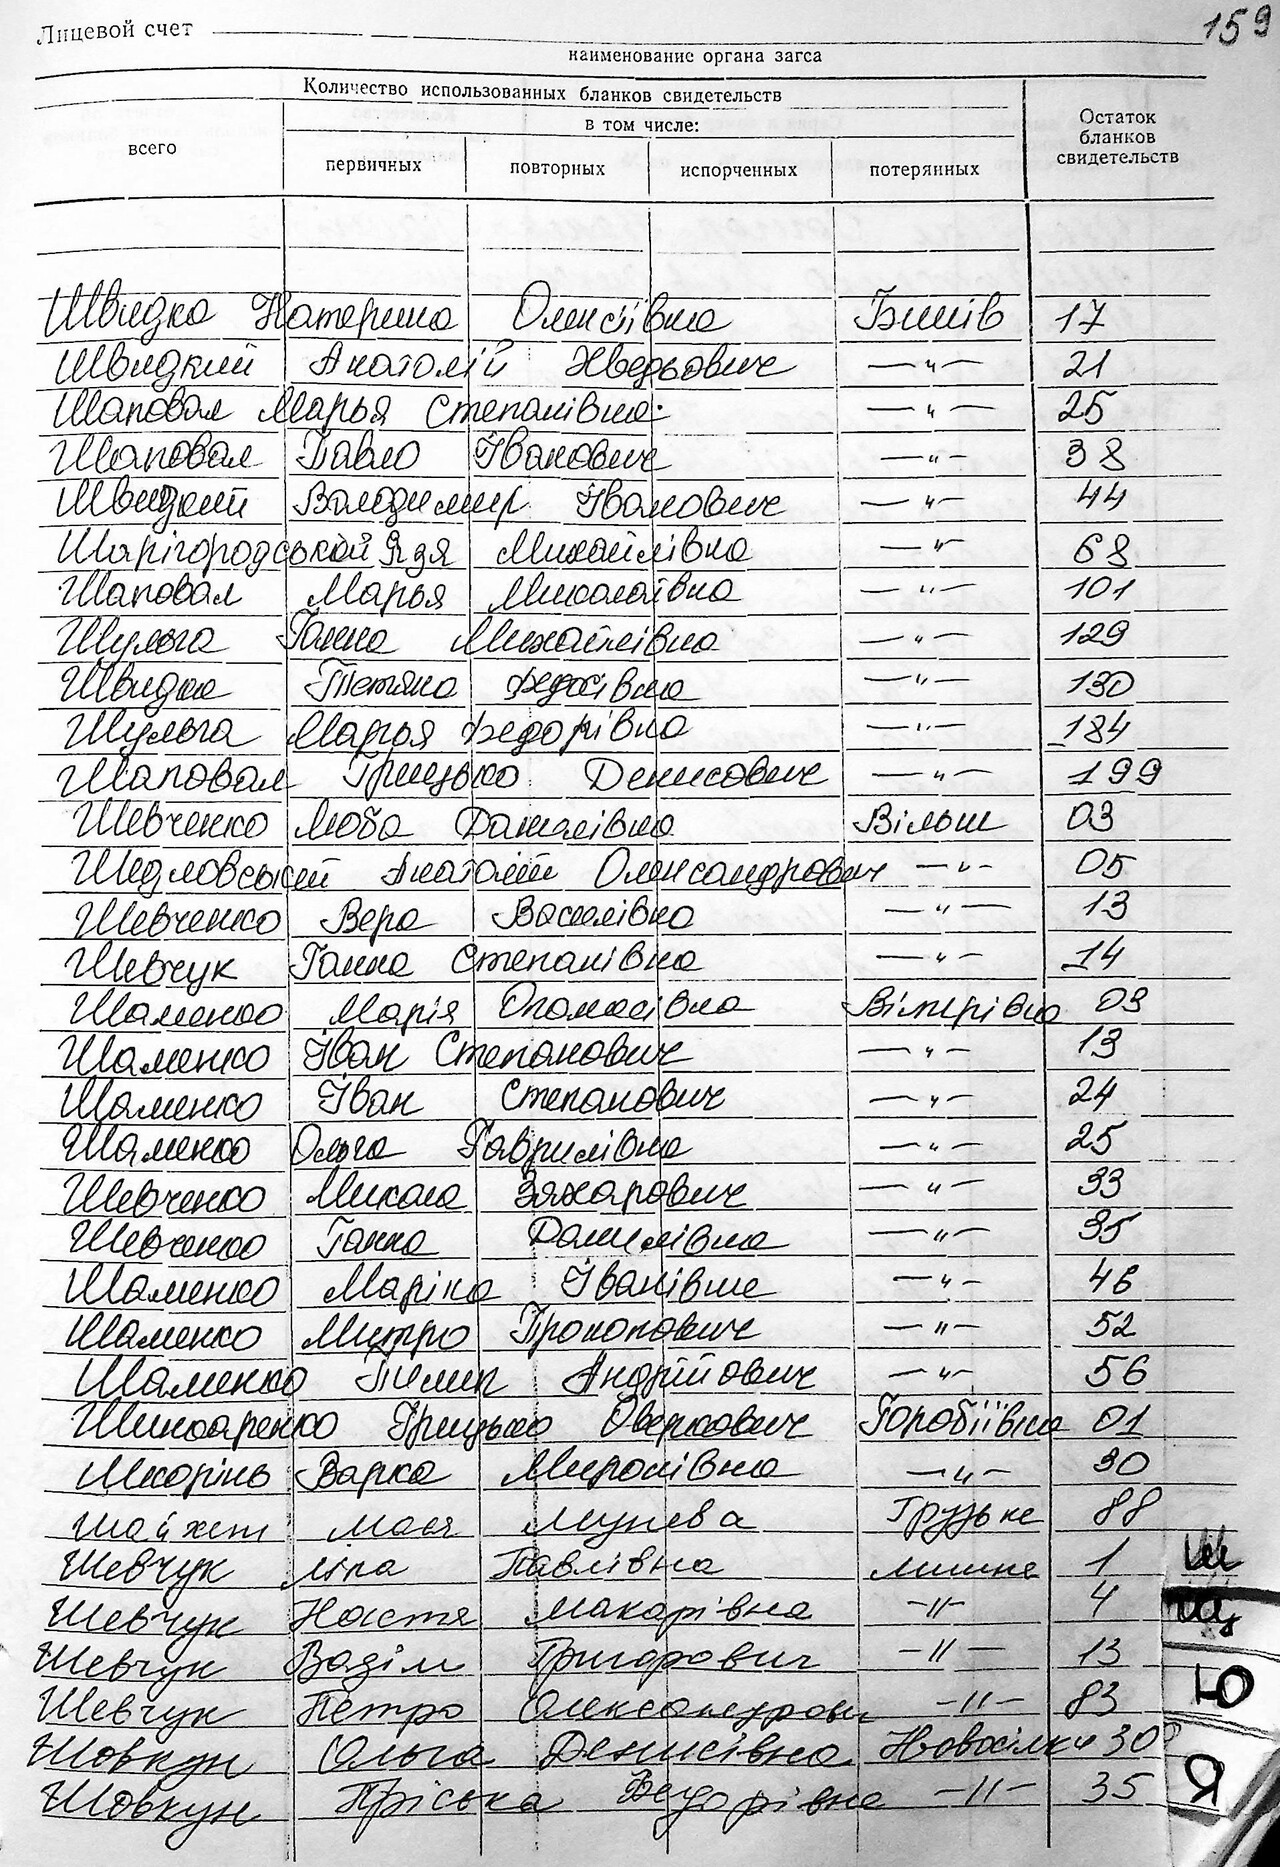 159
Лицевой счет
наименование органа загса
Количество использованных бланков свидетельств
в том числе:
всего
первичных повторных испорченных потерянных
Остаток бланков свидетельств
Швидка Катерина Олексіївна 17
Швидкий Анатолій Хведьович —"— 21
Шаповал Марья Степанівна —"— 25
Шаповал Павло Іванович —"— 38
Швидкий Володимир Іванович —"— 44
Михайлівна —"— 68
Шаповал Марья Миколаївна —"— 101
Шульга Ганна Михайлівна —"— 129
Швидка Тетяна Федосівна —"— 130
Шульга Марья Федорівна —"— 184
Шаповал Грицько Денисович —"— 199
Шевченко Люба Данилівна Вільш 03
Шидловський Анатолій Олександрович —"— 05
Шевченко Вера Василівна —"— 13
Шевчук Ганна Степанівна —"— 14
Шаменко Марія Опанасівна 03
Шаменко Іван Степанович —"— 13
Шаменко Іван Степанович —"— 24
Шаменко Ольга Гаврилівна —"— 25
Шевченко Микола Захарович —"— 33
Шевченко Ганна Данилівна —"— 35
Шаменко Маріка —"— 46
Шаменко Митро Прокопович —"— 52
Шаменко Пилип Андрійович —"— 56
Шинкаренко Грицько Оверкович Горобіївка 01
Шкорінь Варка Миронівна —"— 30
Грузьке 88
Шевчук Ліпа Павлівна 1
Шевчук Настя Макарівна —"— 4
Шевчук Вазіли Григорович —"— 13
Шевчук Петро —"— 83
Шовкун Ольга Денисівна Новосілки 30
Шовкун Пріська Федорівна —"— 35
Ш
Щ
Ю
Я